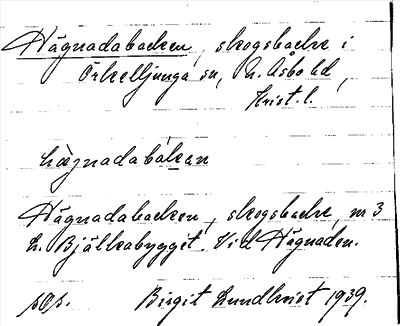 Hägnadabacken, skogsbacke i
Örkelljunga sn, N. Åsbo hd,
Krist. l.
hægnadabákan
Hägnadabacken, skogsbacke, nr 3
L. Bjälkabygget. Vid Hägnaden.
Birgit Lundkvist 1939.